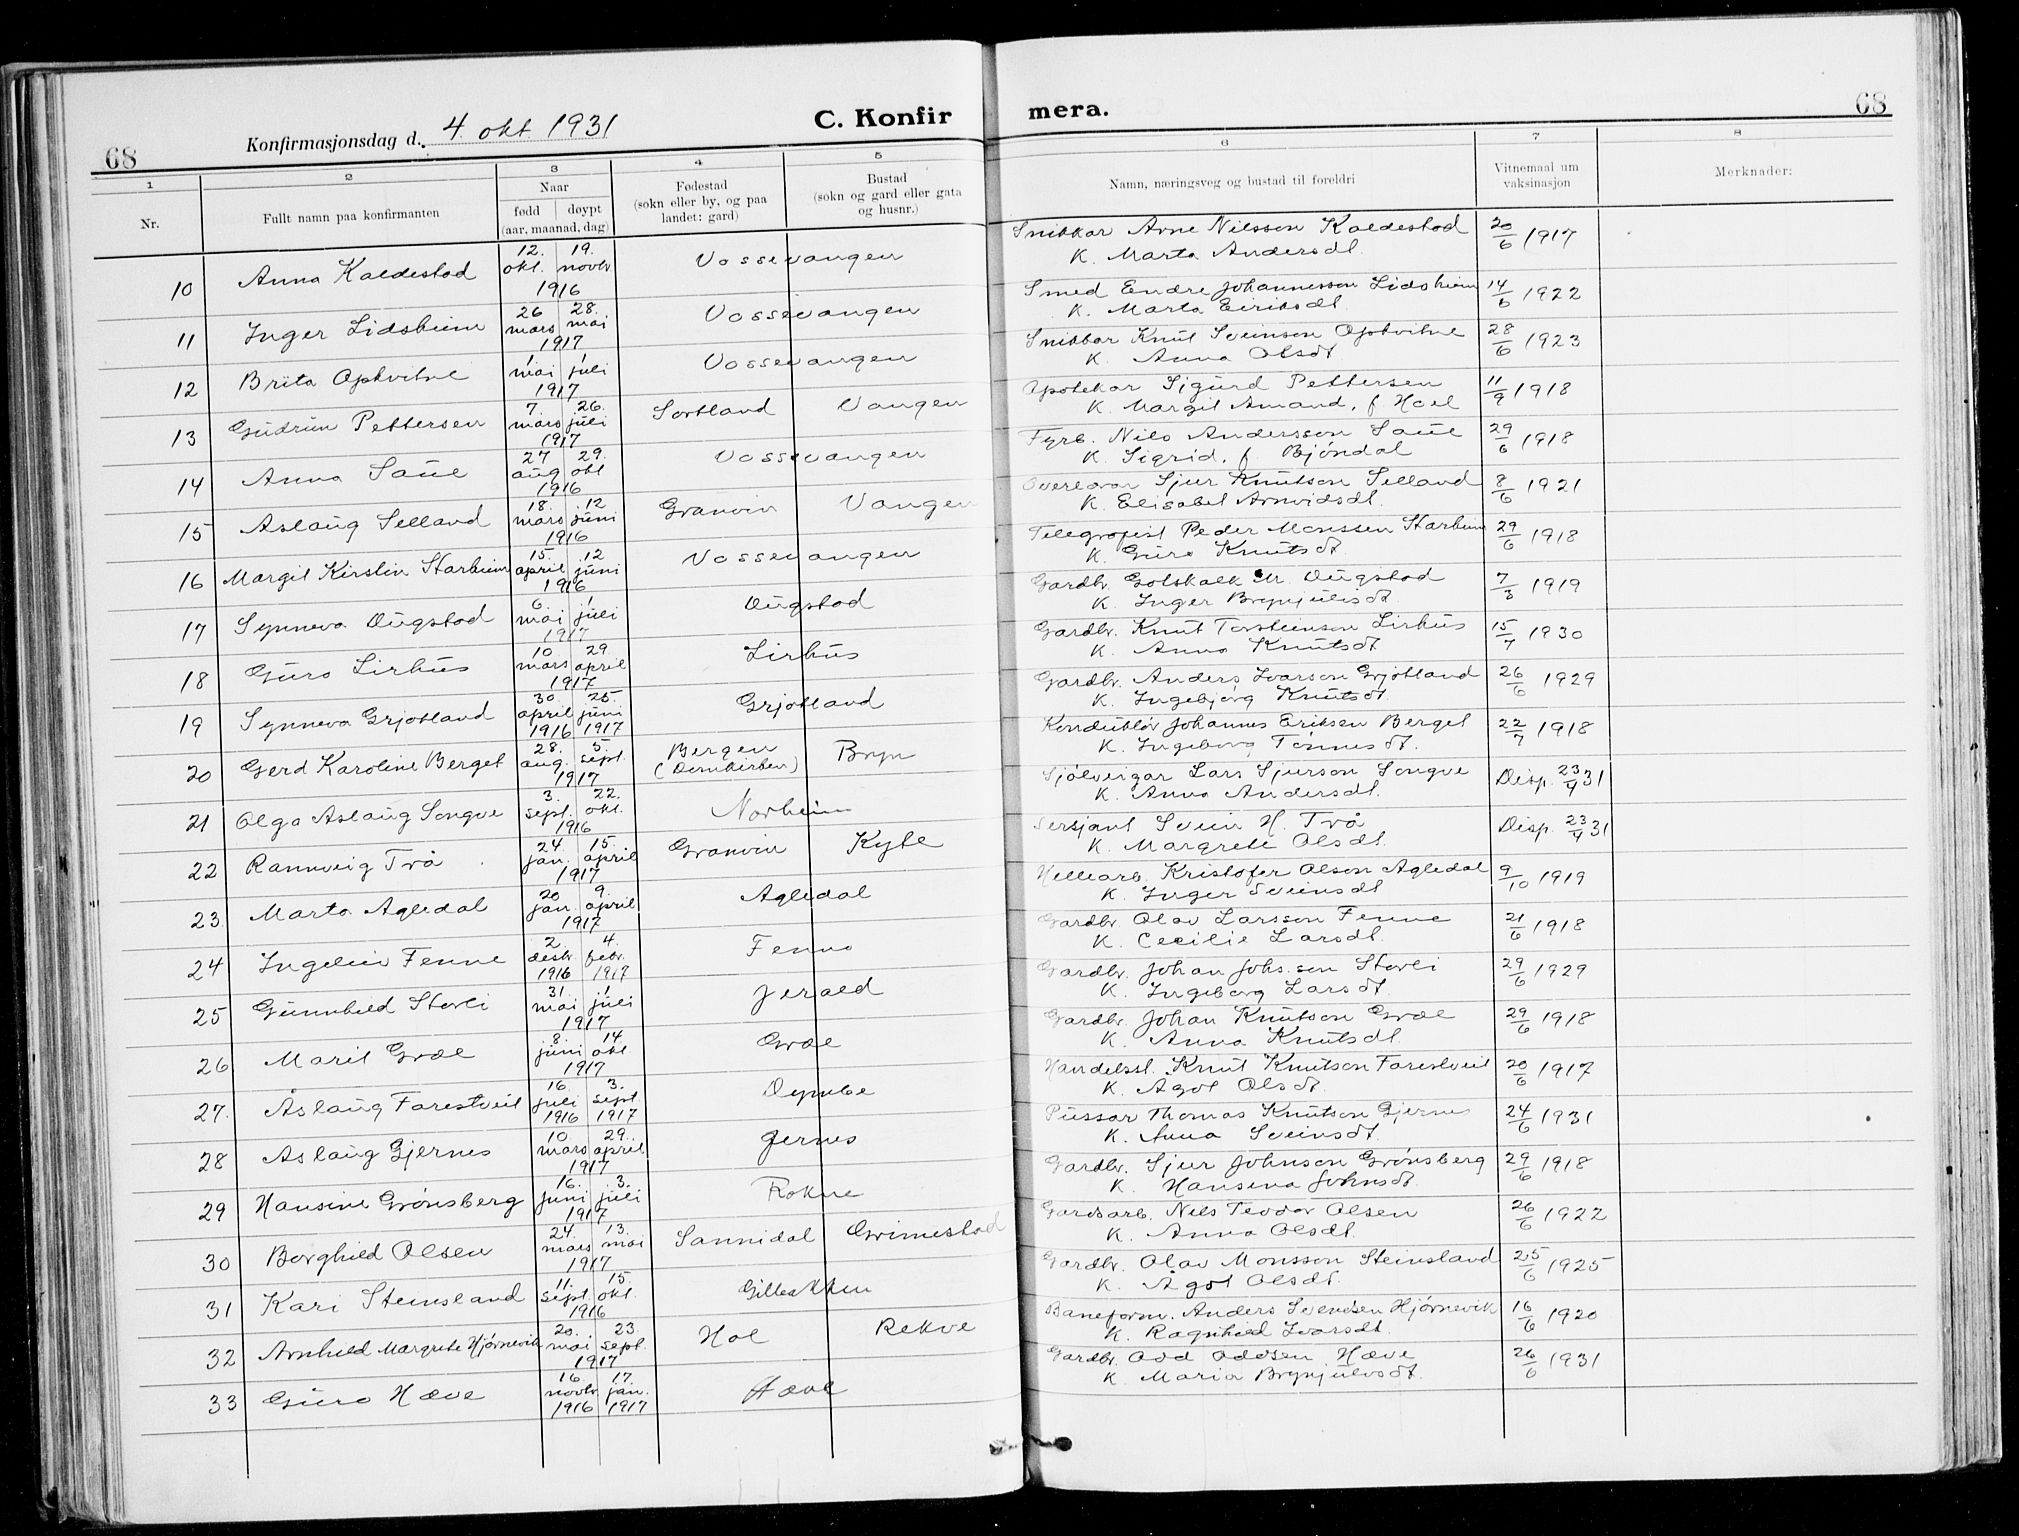 68
Konfirmasjonsdag d. 4. okt 1931
C. Konfir
mera.
68
1 2 3 4 5 6 7 8
Nr.
Fullt namn paa konfirmanten
Naar
født | døypt
(aar, maanad, dag)
Fødestad
(sokn eller by, og paa
landet: gard)
Bustad
(sokn og gard eller gata
og husnr.)
Namn, næringsveg og bustad til foreldri
Vitnemaal um
vaksinasjon
Merknader:
10 Anna Kaldestad 12. okt. 19. novbr 1916 Vossevangen Snikkar Arne Nilsson Kaldestad 20/6 1917
K. Marta Andersdt.
11 Inger Lidsheim 26 mars 28. mai 1917 Vossevangen Smed Endre Johannesson Lidsheim 14/6 1922
K. Marta Eiriksdt.
12 Brita Opkvitne 1 mai 1 juli 1917 Vossevangen Snikkar Knut Sveinson Opkvitne 28/6 1923
K. Anna Olsdt
13 Gudrun Pettersen 7. mars 26. juli 1917 Sortland Vangen Apotekar Sigurd Pettersen 11/9 1918
K. Margit Amand, f Hoel
14 Anna Saue 27 aug 29. okt 1916 Vossevangen Fyrb. Nils Andersson Saue 29/6 1918
K. Sigrid, f. Bjøndal
15 Aslaug Selland 18. mars 12 juni 1916 Granvin Vangen Overlærar Sjur Knutson Selland 8/6 1921
K. Elisabet Arnvidsdt.
16 Margit Kirstin Starheim 15. april 12 juni 1916 Vossevangen Telegrafist Peder Monssen Starheim 29/6 1918
K. Guro Knutsdt.
17 Synneva Dugstad 6. mai 1 juli 1917 Dugstad Gardbr. Gotskalk M. Dugstad 7/3 1919
K. Inger Brynjulvsdt.
18 Guro Lirhus 10 mars 29 april 1917 Lirhus Gardbr. Knut Torsteinson Lirhus 15/7 1930
K. Anna Knutsdt
19 Synneva Grjotland 30 april 1916 25. juni 1917 Grjotland Gardbr. Anders Ivarson Grjotland 26/6 1929
K. Ingebjørg Knutsdt.
20 Gerd Karoline Berget 28. aug. 5. sept. 1917 Bergen (Domkirken) Bryn Konduktør Johannes Eriksen Berget 22/7 1918
K. Ingeborg Tønnesdt.
21 Olga Aslaug Songve 3. sept. 22. okt. 1916 Norheim Sjølveigar Lars Sjurson Songve Disp. 23/4 31
K. Anna Andersdt.
22 Rannveig Trå 24. jan. 15. april 1917 Granvin Kyte Sersjant Svein H. Trå Disp. 23/4 31
K. Margrete Olsdt.
23 Marta Agledal 20 jan. 9. april 1917 Agledal Hellearb. Kristofer Olson Agledal 9/10 1919
K. Inger Sveinsdt
24 Ingelein Fenne 2. desbr. 1916 4. febr. 1917 Fenno Gardbr. Olav Larsson Fenne 21/6 1918
K. Cecilie Larsdt.
25 Gunnhild Storli 31. mai 1 juli 1917 Jerald Gardbr. Johan Johs.son Storli 29/6 1929
K. Ingeborg Larsdt.
26 Marit Græe 8. juni 14. okt 1917 Græe Gardbr. Johan Knutson Græe 29/6 1918
K. Anna Knutsdt.
27. Åslaug Farestveit 16. juli 1916 3. sept. 1917 Dymbe Handelssl. Knut Knutson Farestveit 20/6 1917
K. Ågot Olsdt.
28 Aslaug Gjernes 10 mars 29. april 1917 Gjernes Pussar Thomas Knutson Gjernes 24/6 1931
K. Anna Sveinsdt.
29 Hansine Grønsberg 16. juni 3. juli 1917 Rokne Gardbr. Sjur Johnson Grønsberg 29/6 1918
K. Hansena Johnsdt.
30 Borghild Olsen 24. mars 13. mai 1917 Sannidal Grimestad Gardsarb. Nils Teodor Olsen 26/6 1922
K. Anna Olsdt.
31 Kari Steinsland 11. sept. 15. okt. 1916 Gillesokken Gardbr. Olav Monsson Steinsland 25/6 1925
K. Ågot Olsdt.
32 Arnhild Margrete Hjørnevik 20. mai 23. sept. 1917 Hol Rekve Baneform. Anders Svendsen Hjørnevik 16/6 1920
K. Ragnhild Ivarsdt.
33 Guro Hæve 16. novbr 1916 17. jan. 1917 Hæve Gardbr. Odd Oddsen Hæve 26/6 1931
K. Maria Brynjulvsdt.